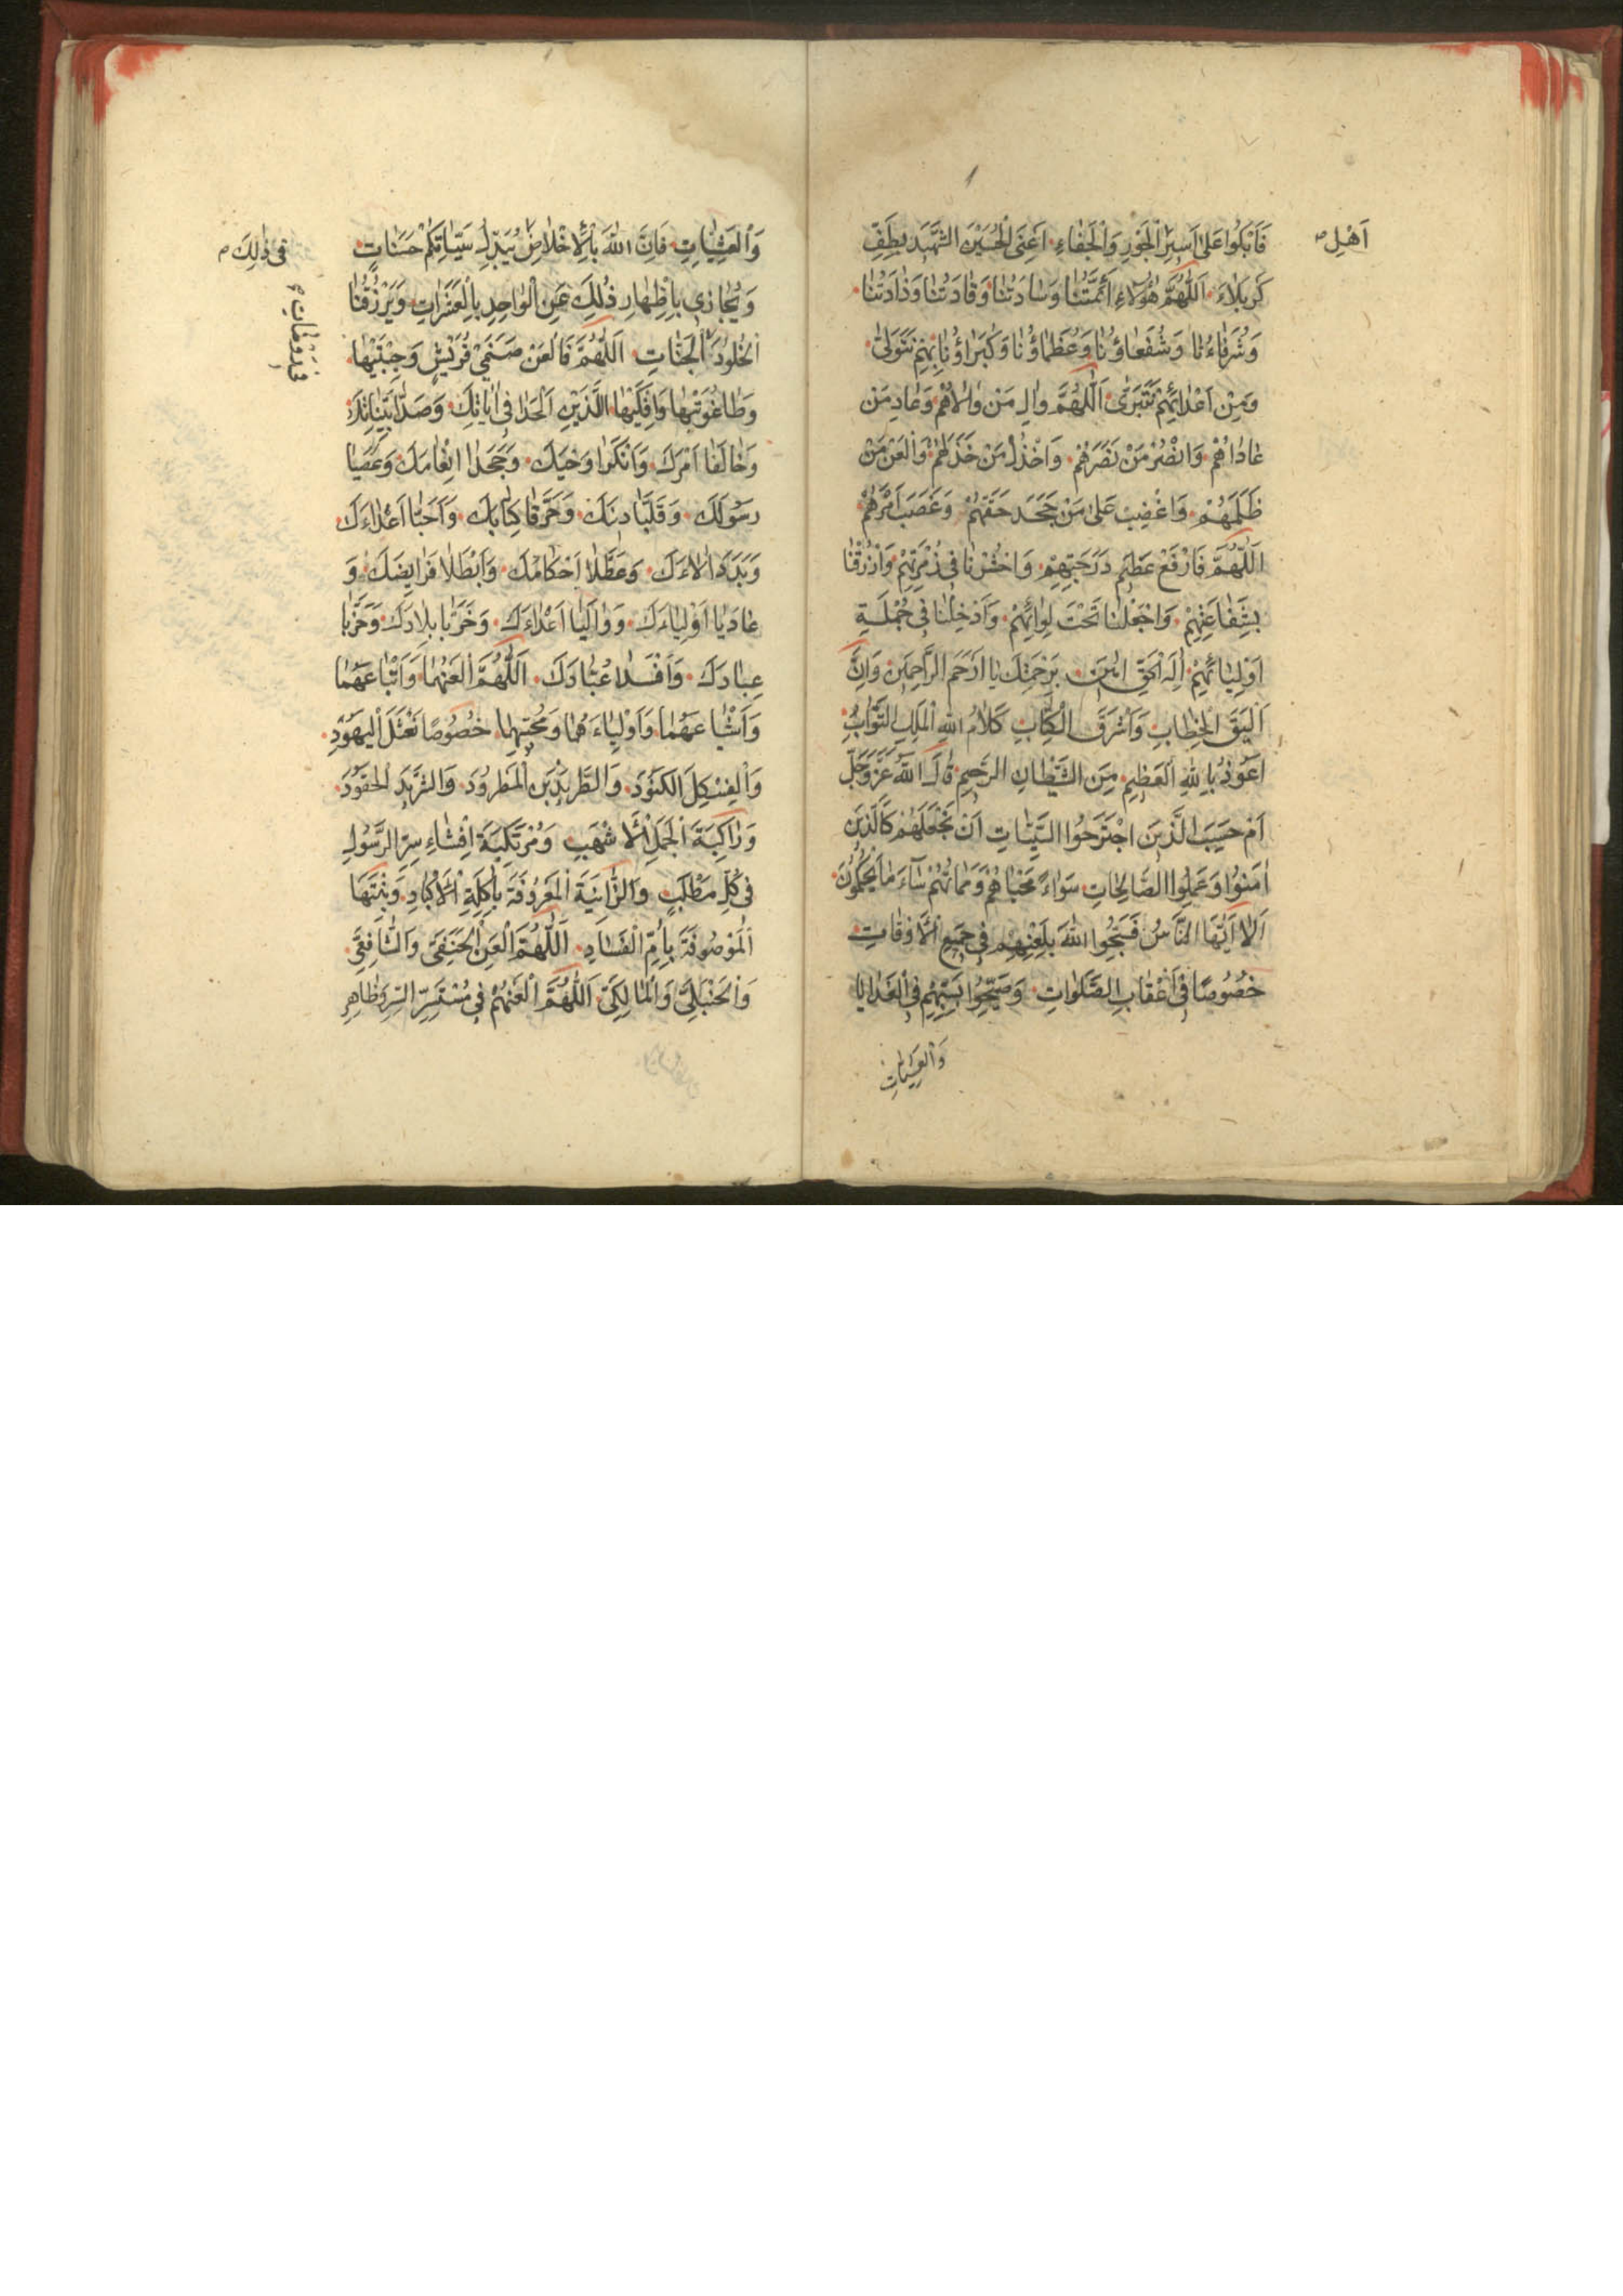 فَابْكُوا عَلَى اَسِيرِ الْجَوْرِ وَالْجَفَاءِ اَعْنِى الْحُسَيْنَ الشَّهِيدَ بِطَفِّ
اَهْلِ
كَرْبَلَاءَ اَللّٰهُمَّ هٰؤُلَاءِ اَئِمَّتُنَا وَسَادَتُنَا وَقَادَتُنَا وَذَادَتُنَا
وَشُرَفَاءُنَا وَشُفَعَاؤُنَا وَعُظَمَاؤُنَا وَكُبَرَاؤُنَا بِهِمْ نَتَوَلّىٰ
وَمِنْ اَعْدَائِهِمْ نَتَبَرّىٰ اَللّٰهُمَّ وَالِ مَنْ وَالَاهُمْ وَعَادِ مَنْ
عَادَاهُمْ وَانْصُرْ مَنْ نَصَرَهُمْ وَاخْذُلْ مَنْ خَذَلَهُمْ وَالْعَنْ مَنْ
ظَلَمَهُمْ وَاغْضِبْ عَلَى مَنْ جَحَدَ حَقَّهُمْ وَغَصَبَ اَمْرَهُمْ
اَللّٰهُمَّ فَارْفَعْ عَظِيمَ دَرَجَتِهِمْ وَاحْشُرْنَا فِى زُمْرَتِهِمْ وَارْزُقْنَا
بِشَفَاعَتِهِمْ وَاجْعَلْنَا تَحْتَ لِوَائِهِمْ وَاَدْخِلْنَا فِى جُمْلَةِ
اَوْلِيَائِهِمْ اِلٰهَ الْحَقِّ اٰمِينَ بِرَحْمَتِكَ يَا اَرْحَمَ الرَّاحِمِينَ وَاِنَّ
اَلْيَقَ الْخِطَابِ وَاَشْرَفَ الْكِتَابِ كَلَامُ اللهِ الْمَلِكِ التَّوَّابِ
اَعُوذُ بِاللهِ الْعَظِيمِ مِنَ الشَّيْطَانِ الرَّجِيمِ قَالَ اللهُ عَزَّ وَجَلَّ
اَمْ حَسِبَ الَّذِينَ اجْتَرَحُوا السَّيِّئَاتِ اَنْ نَجْعَلَهُمْ كَالَّذِينَ
اٰمَنُوا وَعَمِلُوا الصَّالِحَاتِ سَوَاءً مَحْيَاهُمْ وَمَمَاتُهُمْ سَآءَ مَا يَحْكُمُونَ
اَلَا اَيُّهَا النَّاسُ فَسَبِّحُوا اللهَ بِلَعْنِهِمْ فِى جَمِيعِ الْاَوْقَاتِ
خُصُوصًا فِى اَعْقَابِ الصَّلَوَاتِ وَصَبِّحُوا بِسَبِّهِمْ فِى الْغَدَايَا
وَالْعَشِيَّاتِ
وَالْعَشِيَّاتِ فَاِنَّ اللهَ بِالْاِخْلَاصِ يُبَدِّلُ سَيِّئَاتِكُمْ حَسَنَاتٍ
فِى ذٰلِكَ
وَيُجَازِى بِاِظْهَارِ ذٰلِكَ عَنِ الْوَاحِدِ بِالْعَشَرَاتِ وَيَرْزُقُنَا
الْخُلُودَ الْجَنَّاتِ اَللّٰهُمَّ فَالْعَنْ صَنَمَىْ قُرَيْشٍ وَجِبْتَيْهَا
وَطَاغُوتَيْهَا وَاِفْكَيْهَا الَّذَيْنِ اَلْحَدَا فِى اٰيَاتِكَ وَصَدَّا بَيِّنَاتِكَ
وَخَالَفَا اَمْرَكَ وَاَنْكَرَا وَحْيَكَ وَجَحَدَا اِنْعَامَكَ وَعَصَيَا
رَسُولَكَ وَقَلَّبَا دِينَكَ وَحَرَّفَا كِتَابَكَ وَاَحَبَّا اَعْدَاءَكَ
وَبَدَّدَا اٰلَاءَكَ وَعَطَّلَا اَحْكَامَكَ وَاَبْطَلَا فَرَايِضَكَ وَ
عَادَيَا اَوْلِيَاءَكَ وَوَالَيَا اَعْدَاءَكَ وَخَرَّبَا بِلَادَكَ وَحَرَّبَا
عِبَادَكَ وَاَفْسَدَا عُبَّادَكَ اَللّٰهُمَّ الْعَنْهُمَا وَاَتْبَاعَهُمَا
وَاَشْيَاعَهُمَا وَاَوْلِيَاءَهُمَا وَمُحِبِّيهِمَا خُصُوصًا نَعْثَلَ الْيَهُودِ
وَالْفِسْكِلَ الْكَنُودَ وَالطَّرِيدَ بْنَ الْمَطْرُودَ وَالشَّرِيدَ الْحَقُودَ
وَرَاكِبَةَ الْجَمَلِ الْاَشْهَبِ وَمُرْتَكِبَةَ اِفْشَاءِ سِرِّ الرَّسُولِ
فِى كُلِّ مَطْلَبٍ وَالزَّانِيَةَ الْمَعْرُوفَةَ بِاٰكِلَةِ الْاَكْبَادِ وَبِنْتَهَا
الْمَوْصُوفَةَ بِاُمِّ الْفَسَادِ اَللّٰهُمَّ الْعَنِ الْحَنَفِىَّ وَالشَّافِعِىَّ
وَالْحَنْبَلِىَّ وَالْمَالِكِىَّ اَللّٰهُمَّ الْعَنْهُمْ فِى مُسْتَسِرِّ السِّرِّ وَظَاهِرِ